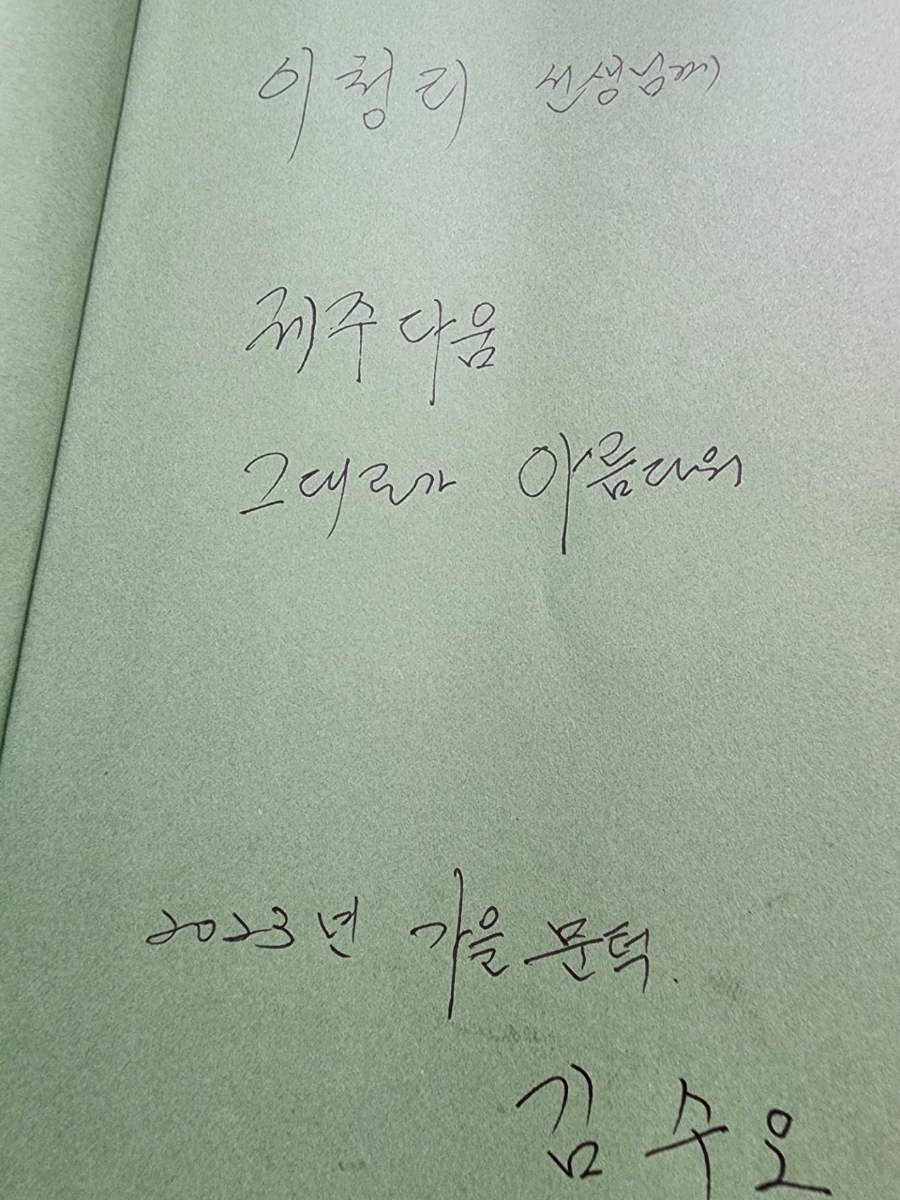 이청리 선생님께
제주다움
그대로가 아름다워
2023년 가을 문턱.
김수오